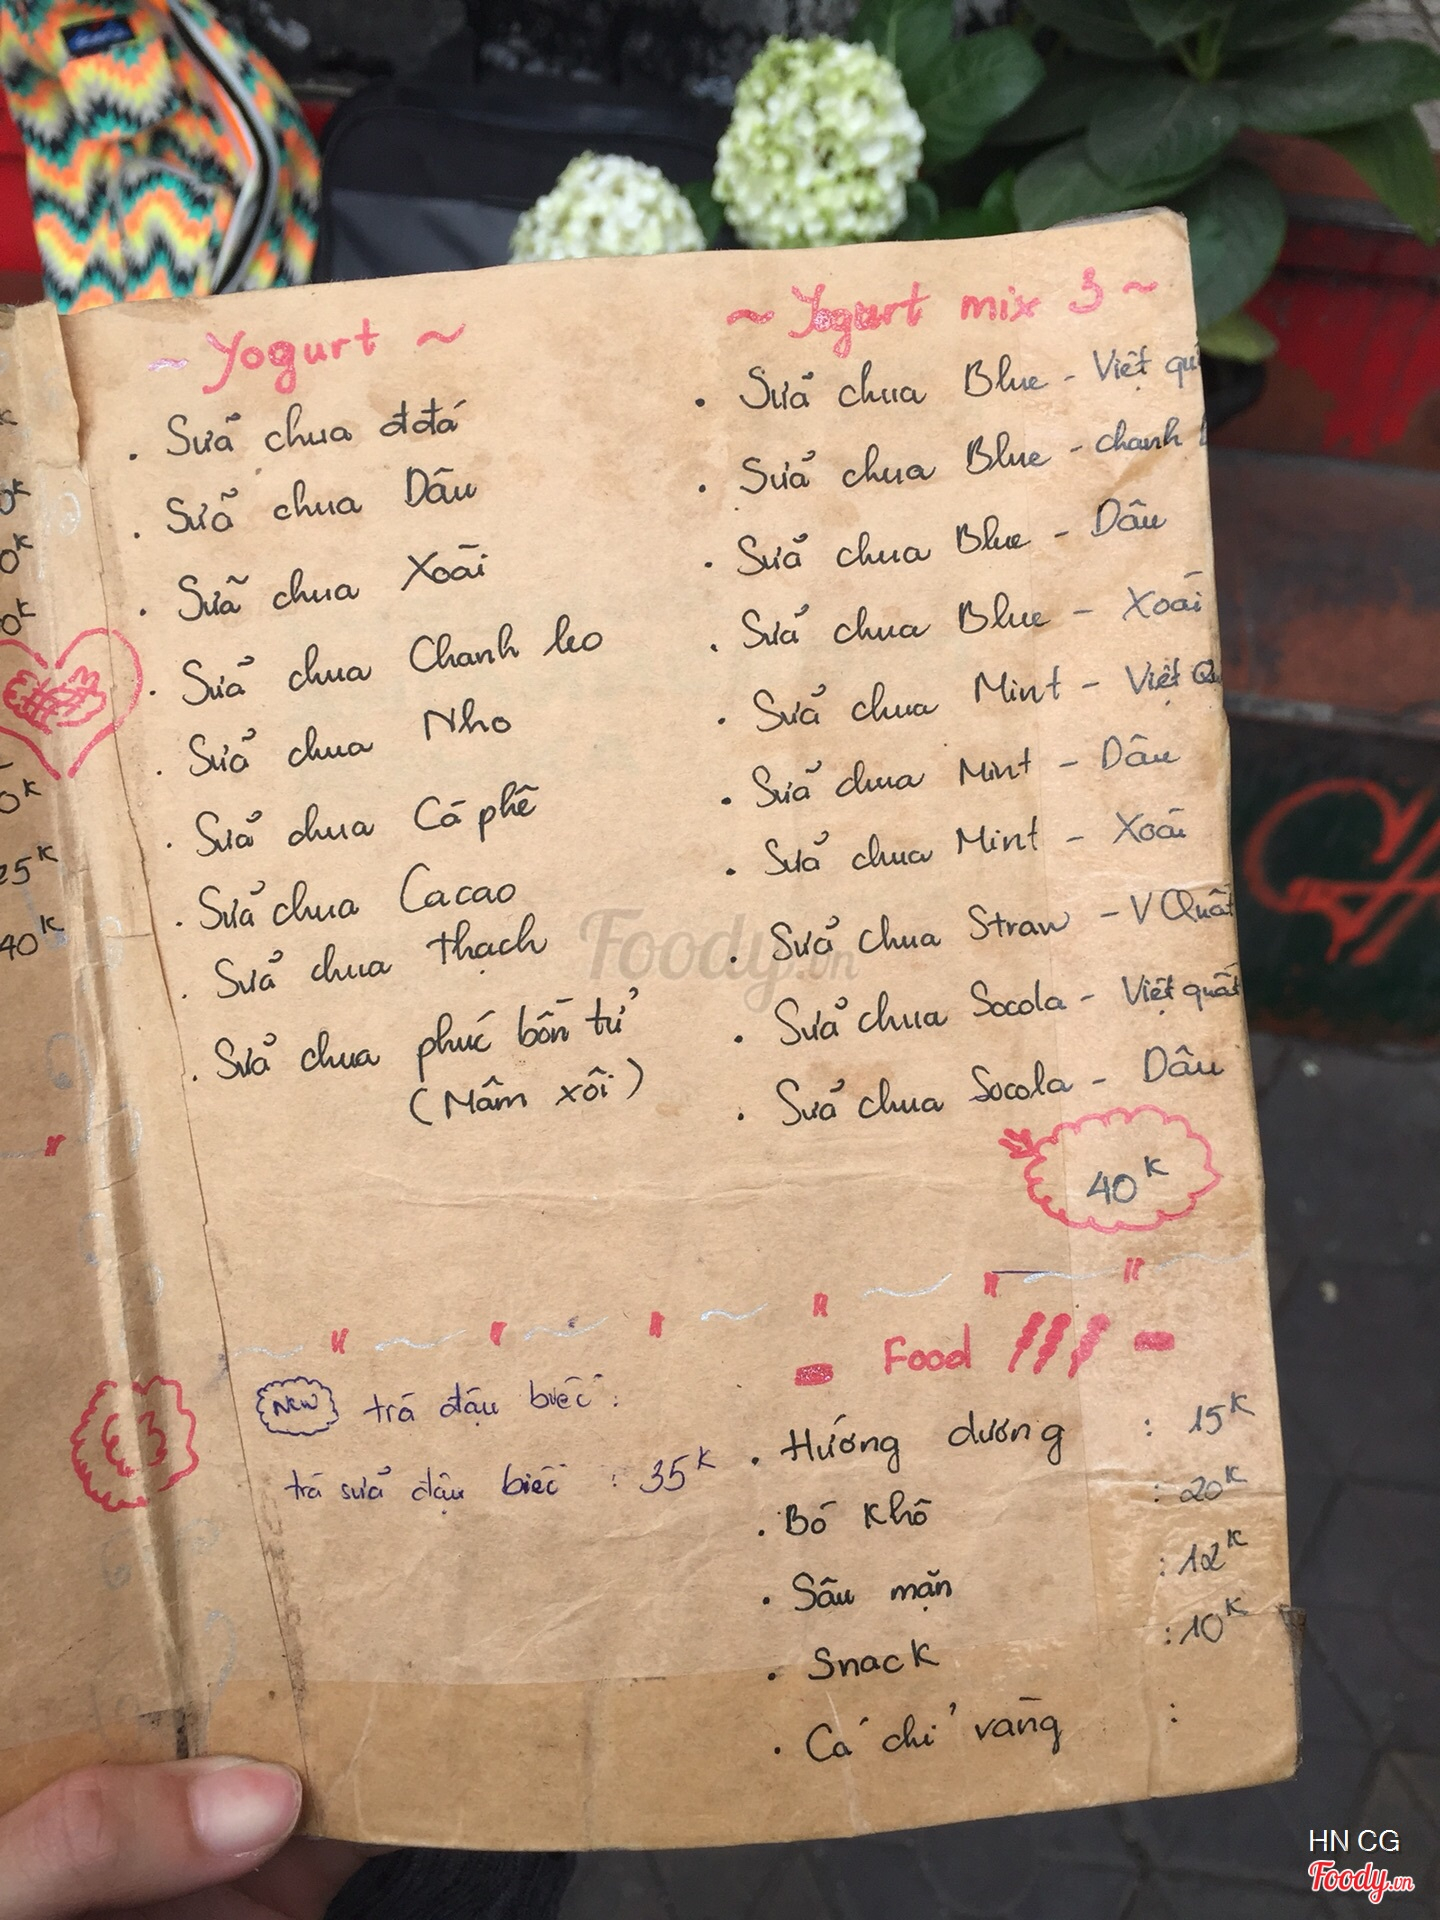 ~ Yogurt ~
. Sữa chua đ đá
. Sữa chua Dâu
. Sữa chua Xoài
. Sữa chua Chanh leo
. Sữa chua Nho
. Sữa chua Cà phê
. Sữa chua Cacao
. Sữa chua thạch
. Sữa chua phúc bồn tử
(Mâm xôi)
~ Yogurt mix 3 ~
. Sữa chua Blue - Việt qu
. Sữa chua Blue - chanh
. Sữa chua Blue - Dâu
. Sữa chua Blue - Xoài
. Sữa chua Mint - Việt Qu
. Sữa chua Mint - Dâu
. Sữa chua Mint - Xoài
. Sữa chua Straw - V Quất
. Sữa chua Socola - Việt quất
. Sữa chua Socola - Dâu
40K
NEW trà đậu biếc :
trà sữa đậu biếc : 35K
- Food -
. Hướng dương : 15K
. Bò Khô : 20K
. Sấu mặn : 12K
. Snack : 10K
. Cá chỉ vàng :
0K
0K
0K
0K
25K
40K
Foody.vn
HN CG
Foody.vn